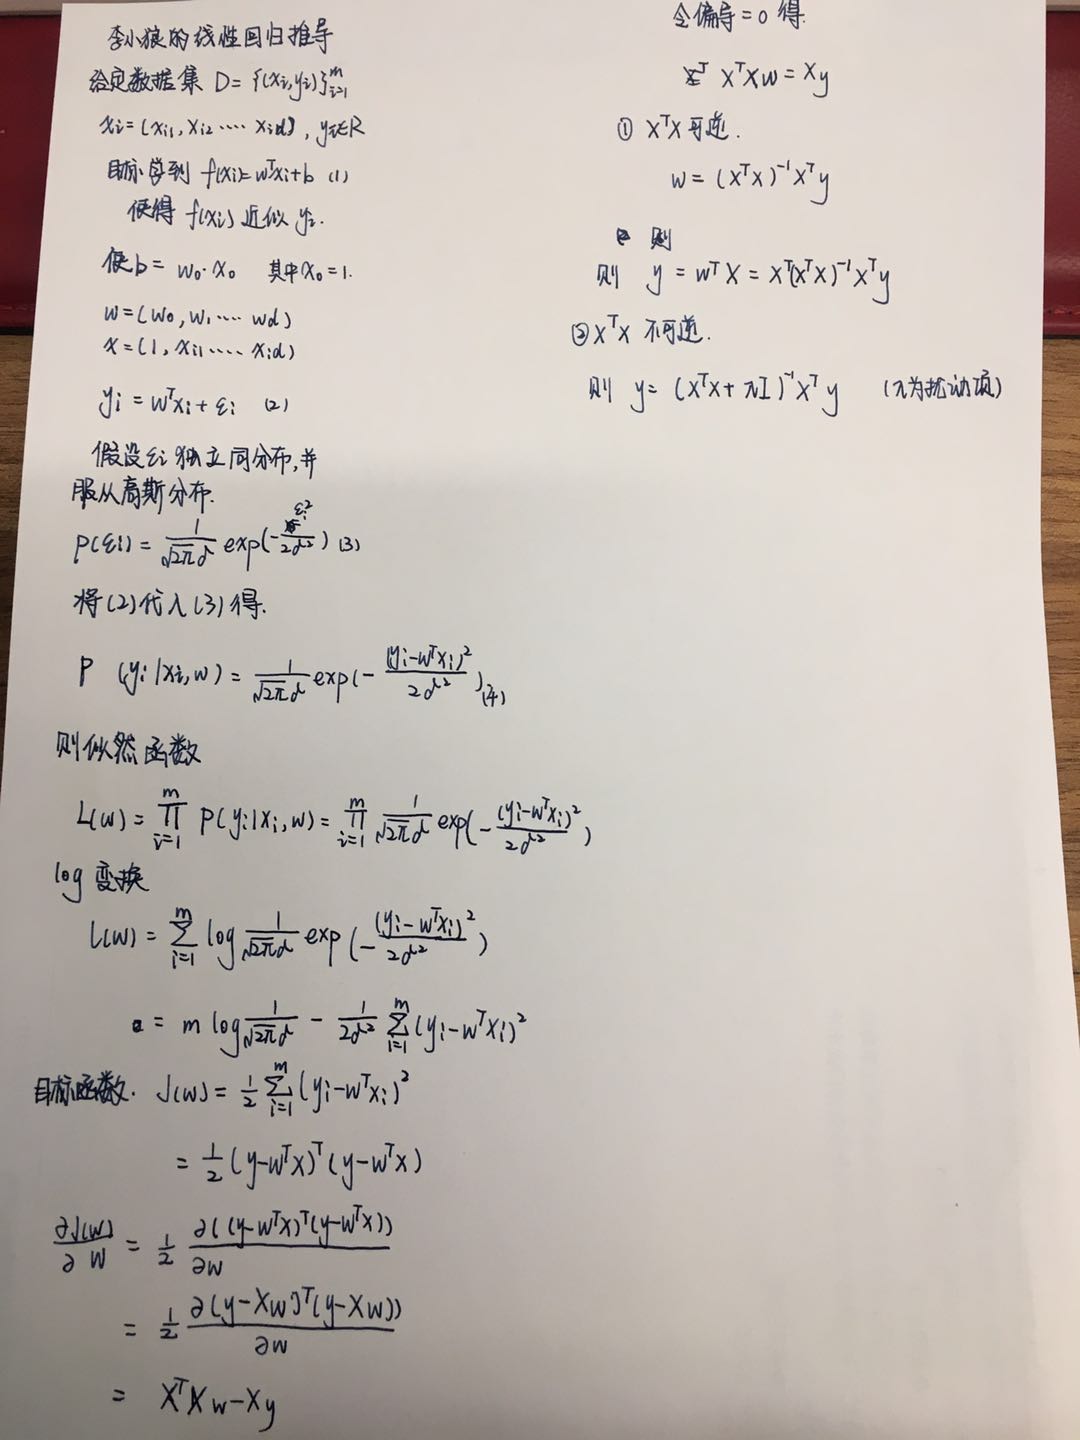 李小狼的线性回归推导
给定数据集 D={(xi,yi)}ᵐᵢ₌₁
xi=(xi1,xi2....xid), yi∈R
目标学到 f(xi)=wᵀxi+b (1)
使得 f(xi) 近似 yi.
使b= w₀·x₀ 其中x₀=1.
w=(w₀,w₁....wd)
x=(1,xi1.....xid)
yi=wᵀxi+εi (2)
假设εi独立同分布,并
服从高斯分布.
p(εi)= 1/(√2πσ) exp(-εi²/2σ²) (3)
将(2)代入(3)得.
P (yi|xi,w)= 1/(√2πσ) exp(-(yi-wᵀxi)²/2σ²) (4)
则似然函数
L(w)= ∏ᵐᵢ₌₁ P(yi|xi,w)= ∏ᵐᵢ₌₁ 1/(√2πσ) exp(-(yi-wᵀxi)²/2σ²)
log 变换
l(w)= ∑ᵐᵢ₌₁ log 1/(√2πσ) exp(-(yi-wᵀxi)²/2σ²)
= m log 1/(√2πσ) - 1/2σ² ∑ᵐᵢ₌₁(yi-wᵀxi)²
目标函数. J(w)= 1/2 ∑ᵐᵢ₌₁(yi-wᵀxi)²
= 1/2 (y-wᵀx)ᵀ(y-wᵀx)
∂J(w)/∂w = 1/2 ∂((y-wᵀx)ᵀ(y-wᵀx))/∂w
= 1/2 ∂(y-Xw)ᵀ(y-Xw))/∂w
= XᵀXw-Xy
令偏导=0得.
XᵀXw=Xy
① XᵀX可逆.
w=(XᵀX)⁻¹Xᵀy
则
则 y=wᵀX=Xᵀ(XᵀX)⁻¹Xᵀy
②XᵀX 不可逆.
则 y=(XᵀX+λI)⁻¹Xᵀy (λ为扰动项)